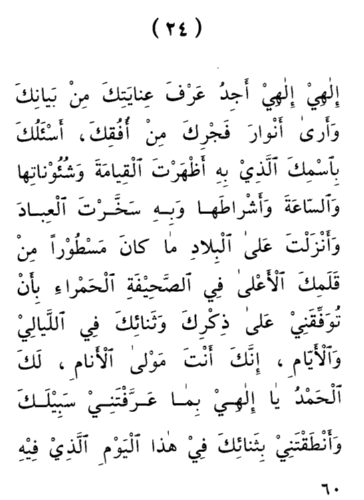 ( ٢٤ )
إِلٰهِيْ إِلٰهِيْ أَجِدُ عَرْفَ عِنايَتِكَ مِنْ بَيانِكَ
وَأَرىٰ أَنْوارَ فَجْرِكَ مِنْ أُفُقِكَ، أَسْئَلُكَ
بِٱسْمِكَ ٱلَّذِيْ بِهِ أَظْهَرْتَ ٱلْقِيامَةَ وَشُئُوْناتِها
وَٱلسّاعَةَ وَأَشْراطَهـا وَبِـهِ سَخَّـرْتَ ٱلْعِبـادَ
وَأَنْزَلْتَ عَلىٰ ٱلْبِلادِ ما كانَ مَسْطُوْراً مِنْ
قَلَمِكَ ٱلْأَعْلىٰ فِي ٱلصَّحِيْفَةِ ٱلْحَمْراءِ بِأَنْ
تُوَفِّقَنِيْ عَلىٰ ذِكْرِكَ وَثَنائِكَ فِي ٱللَّيالِيْ
وَٱلْأَيّامِ، إِنَّكَ أَنْتَ مَوْلىٰ ٱلْأَنامِ، لَكَ
ٱلْحَمْدُ يٰا إِلٰهِـيْ بِمٰـا عَـرَّفْتَنِـيْ سَبِيْلَـكَ
وَأَنْطَقْتَنِيْ بِثَنائِكَ فِيْ هٰذا ٱلْيَوْمِ ٱلَّذِيْ فِيْهِ
٦٠